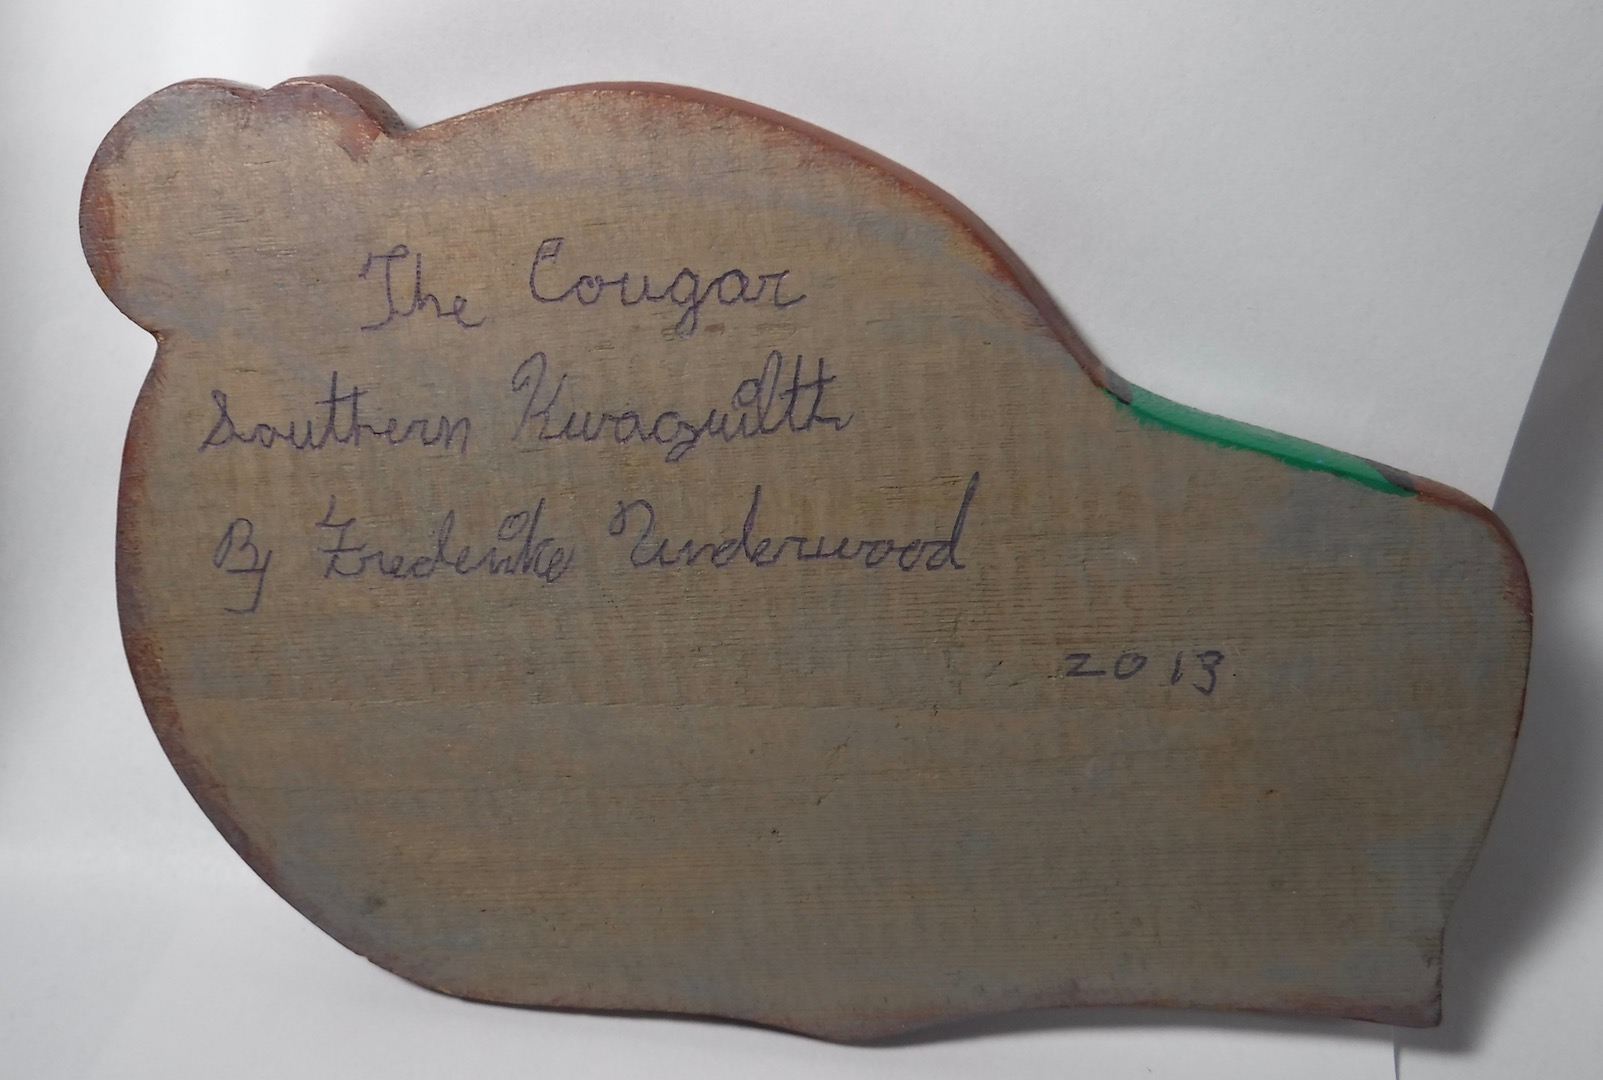 The Cougar
Southern Kwaguilth
By Frederike Underwood
2013